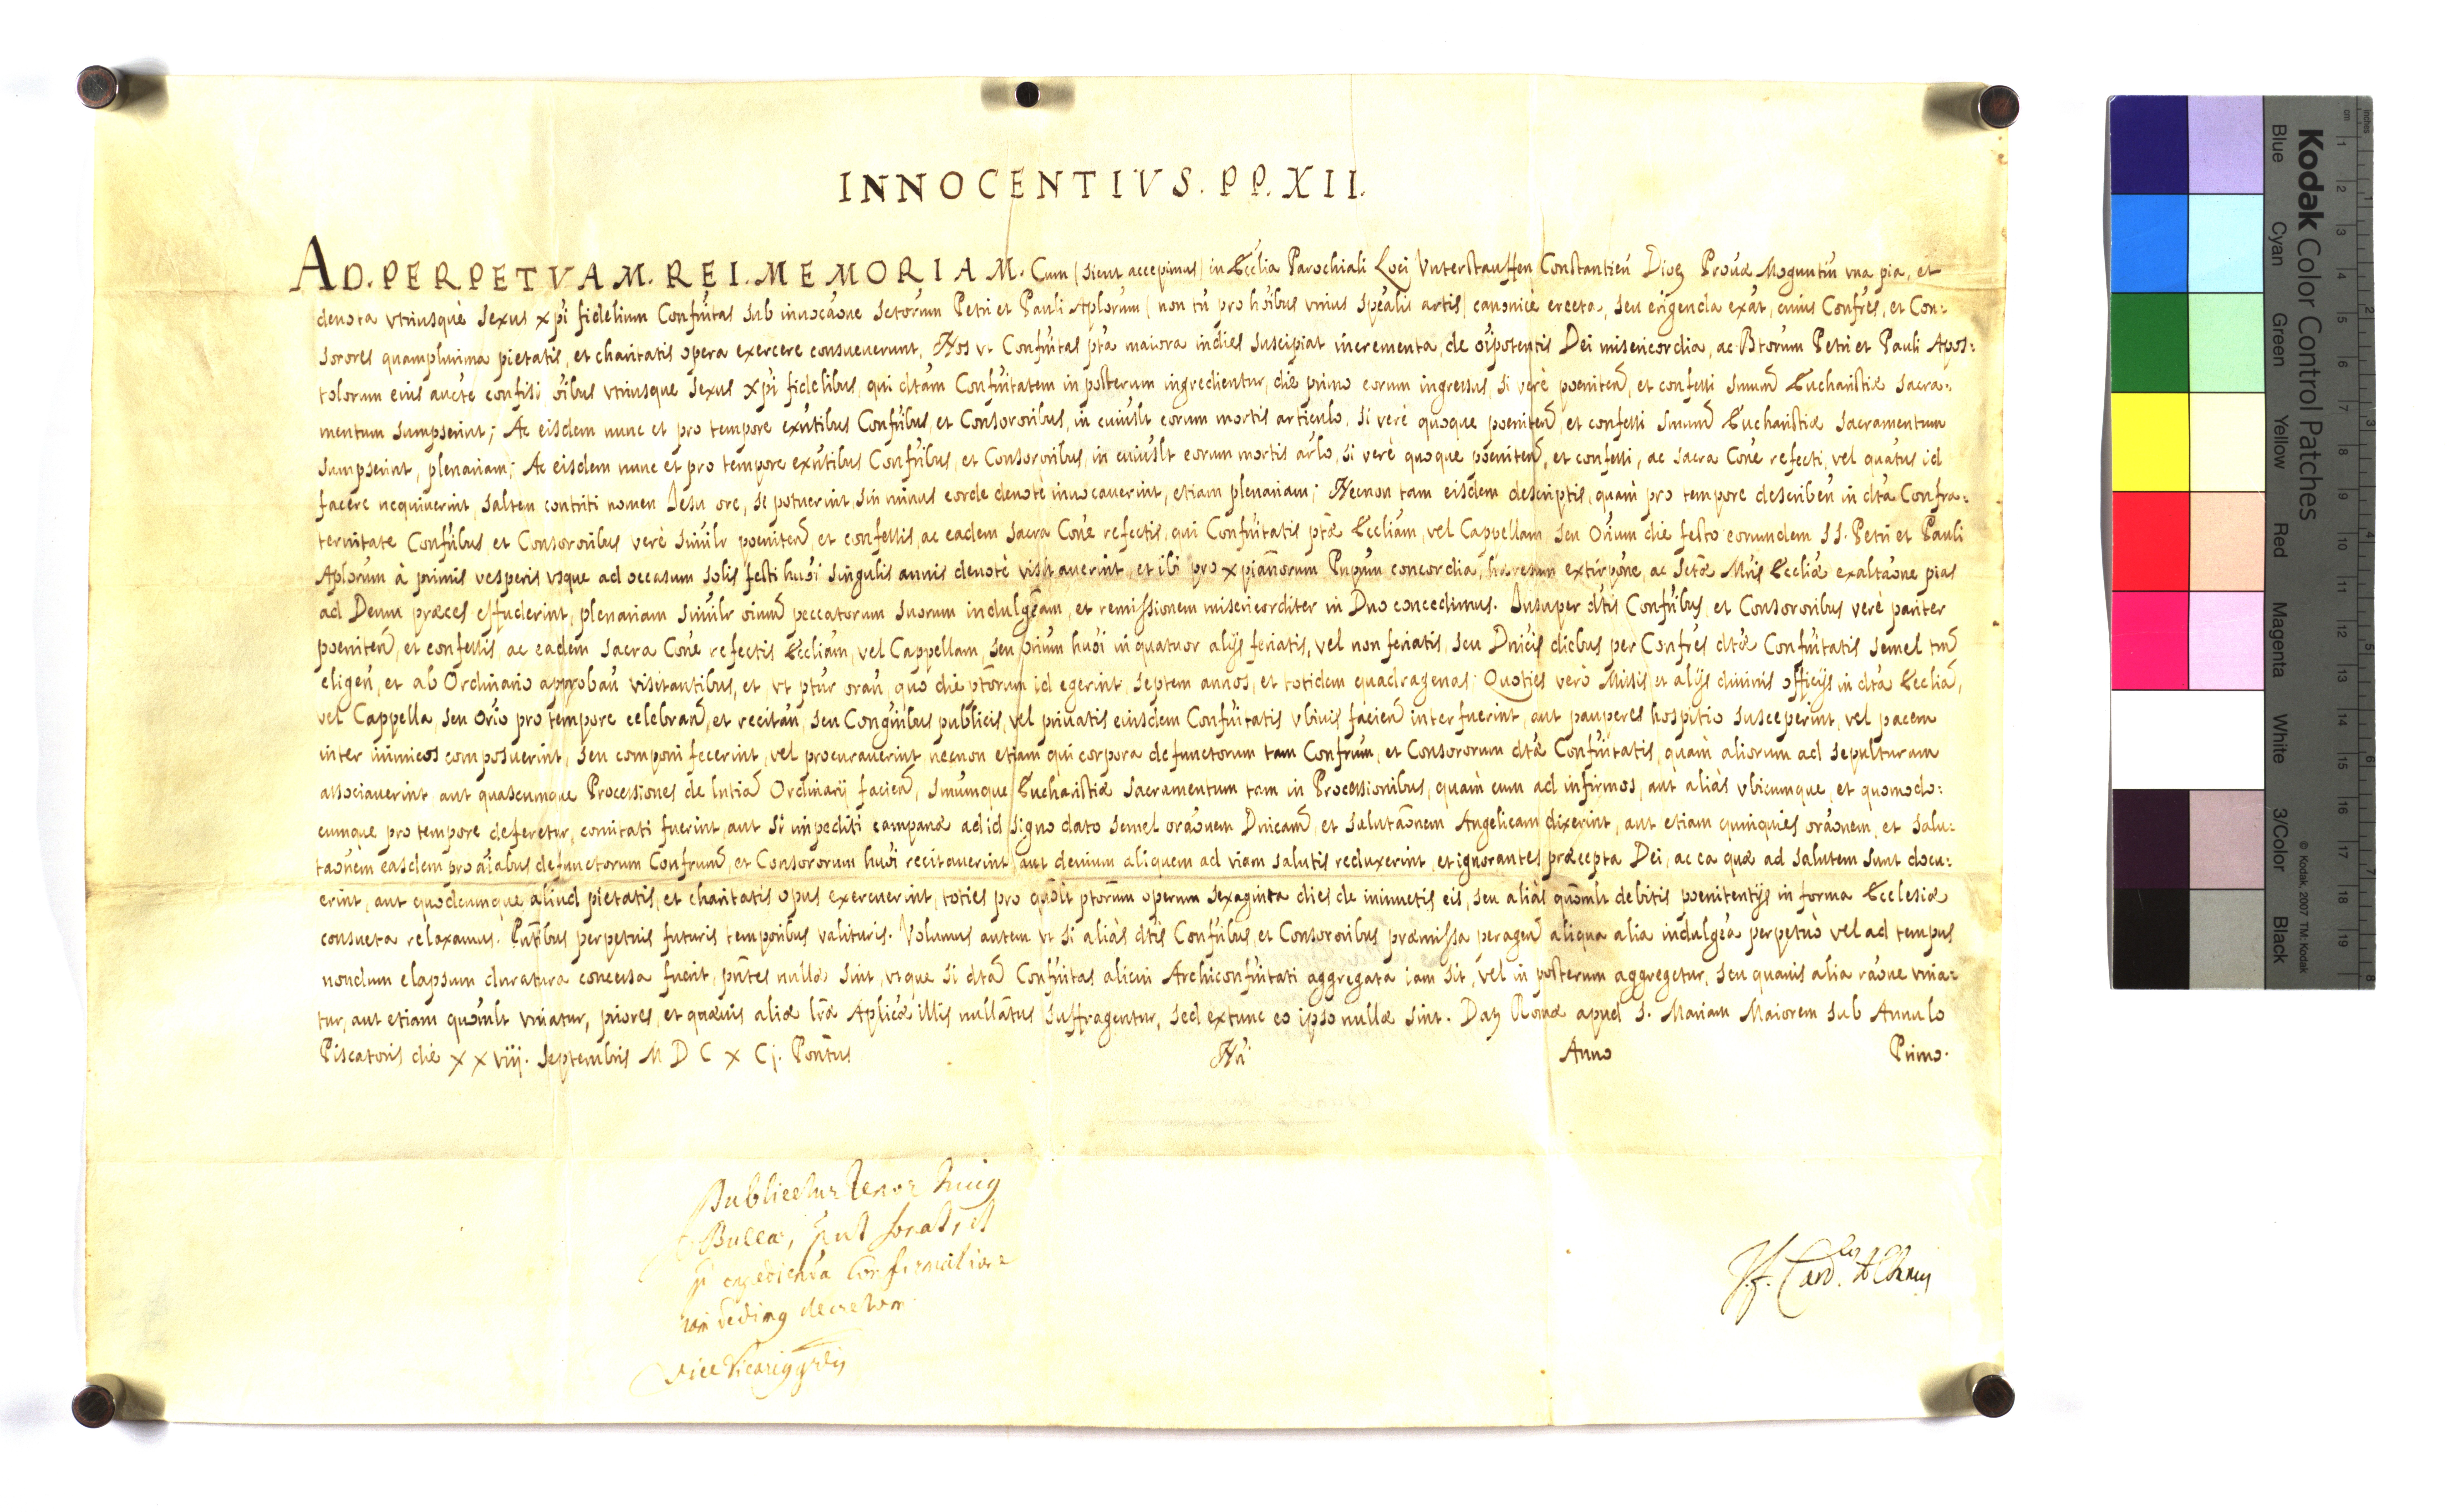 INNOCENTIVS. PP. XII.
AD. PERPETVAM. REI. MEMORIAM. Cum (sicut accepimus) in Ecclia Parochiali Loci Vnterstauffen Constantien Dioc Provae Moguntin vna pia, et
devota vtriusque sexus xpi fidelium Confritas sub invocaone Sctorum Petri et Pauli Aplorum (non tn pro hoibus vnius spealis artis) canonicè erecta, seu erigenda exāt, cuius Confres, et Con:
sorores quamplurima pietatis, et charitatis opera exercere consueuerunt, Nos vt Confritas pta maiora indies suscipiat incrementa, de oipotentis Dei misericordia, ac Btorum Petri et Pauli Apos:
tolorum eius aucte confisi oibus vtriusque sexus xpi fidelibus, qui dtam Confritatem in posterum ingredientur, die primo eorum ingressus, si verè poeniten, et confessi Smum Eucharistiæ sacra:
mentum sumpserint; Ac eisdem nunc et pro tempore exntibus Confribus, et Consororibus, in cuiuslt eorum mortis articulo, si verè quoque poeniten, et confessi Smum Eucharistiæ sacramentum
sumpserint, plenariam; Ac eisdem nunc et pro tempore exntibus Confribus, et Consororibus, in cuiuslt eorum mortis arlo, si verè quoque poeniten, et confessi, ac sacra Cone refecti, vel quatus id
facere nequiuerint, saltem contriti nomen Iesu ore, si potuerint, sin minus corde deuotè inuocauerint, etiam plenariam; Necnon tam eisdem descriptis, quam pro tempore describen in dta Confra:
ternitate Confribus, et Consororibus verè similr poeniten, et confessis, ac eadem sacra Cone refectis, qui Confritatis ptæ Eccliam, vel Cappellam, seu Orium die festo eorumdem SS. Petri et Pauli
Aplorum à primis vesperis vsque ad occasum solis festi huoi singulis annis deuotè visitauerint, et ibi pro xpianorum Pnpum concordia, hæresum extirpone, ac Sctæ Mris Eccliæ exaltaone pias
ad Deum præces effuderint, plenariam similr oium peccatorum suorum indulgeam, et remissionem misericorditer in Dno concedimus. Insuper dtis Confribus, et Consororibus verè pariter
poeniten, et confessis, ac eadem sacra Cone refectis Eccliam, vel Cappellam, seu Orium huoi in quatuor alijs feriatis, vel non feriatis, seu Dnicis diebus per Confres dtæ Confritatis semel tm
eligen, et ab Ordinario approban visitantibus, et, vt ptur oran, quo die ptorum id egerint, septem annos, et totidem quadragenas: Quoties verò Missis, et alijs diuinis officijs in dta Ecclia,
vel Cappella, seu Orio pro tempore celebran, et recitan, seu Congnibus publicis, vel priuatis eiusdem Confritatis vbiuis facien interfuerint, aut pauperes hospitio susceperint, vel pacem
inter inimicos composuerint, seu componi fecerint, vel procurauerint necnon etiam qui corpora defunctorum tam Confrum, et Consororum dtæ Confritatis, quam aliorum ad sepulturam
associauerint, aut quascumque Processiones de lntia Ordinarij facien, Smumque Eucharistiæ sacramentum tam in Processionibus, quam cum ad infirmos, aut aliàs vbicumque, et quomodo:
cumque pro tempore deferetur, comitati fuerint, aut si impediti campanæ ad id signo dato semel oraonem Dnicam, et salutaonem Angelicam dixerint, aut etiam quinquies oraonem, et salu:
taonem easdem pro aiabus defunctorum Confrum, et Consororum huoi recitauerint, aut deuium aliquem ad viam salutis reduxerint, et ignorantes præcepta Dei, ac ea quæ ad salutem sunt docu:
erint, aut quodcumque aliud pietatis, et charitatis opus exercuerint, toties pro quolt ptorum operum sexaginta dies de iniunctis eis, seu aliàs quomlt debitis poenitentijs in forma Ecclesiæ
consueta relaxamus. Pntibus perpetuis futuris temporibus valituris. Volumus autem vt si aliàs dtis Confribus, et Consororibus præmissa peragen aliqua alia indulgea perpetuò vel ad tempus
nondum elapsum duratura concessa fuerit, pntes nullæ sint, vtque si dta Confritas alicui Archiconfritati aggregata iam sit, vel in posterum aggregetur, seu quauis alia raone vnia:
tur, aut etiam quomlt vniatur, priores, et quæuis aliæ lræ Aplicæ illis nullatus suffragentur, sed extunc eo ipso nullæ sint. Dat Romæ apud S. Mariam Maiorem sub Annulo
Piscatoris die XXviij. Septembris MDCXCj. Pontus Nri Anno Primo.
Publicetur tenor huig
Bullæ, put sonat, et
expedienta Confirmatione
decretum
Vice Vicarig
J. F. Card. Albanus